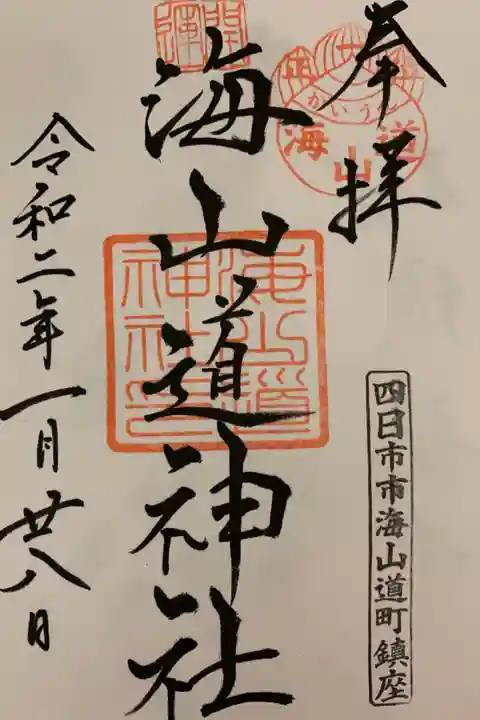 奉拝
正一位
かいうん
海山道
四日市市海山道町鎮座
開運
海山道神社
海山道神社印
令和二年一月廿八日